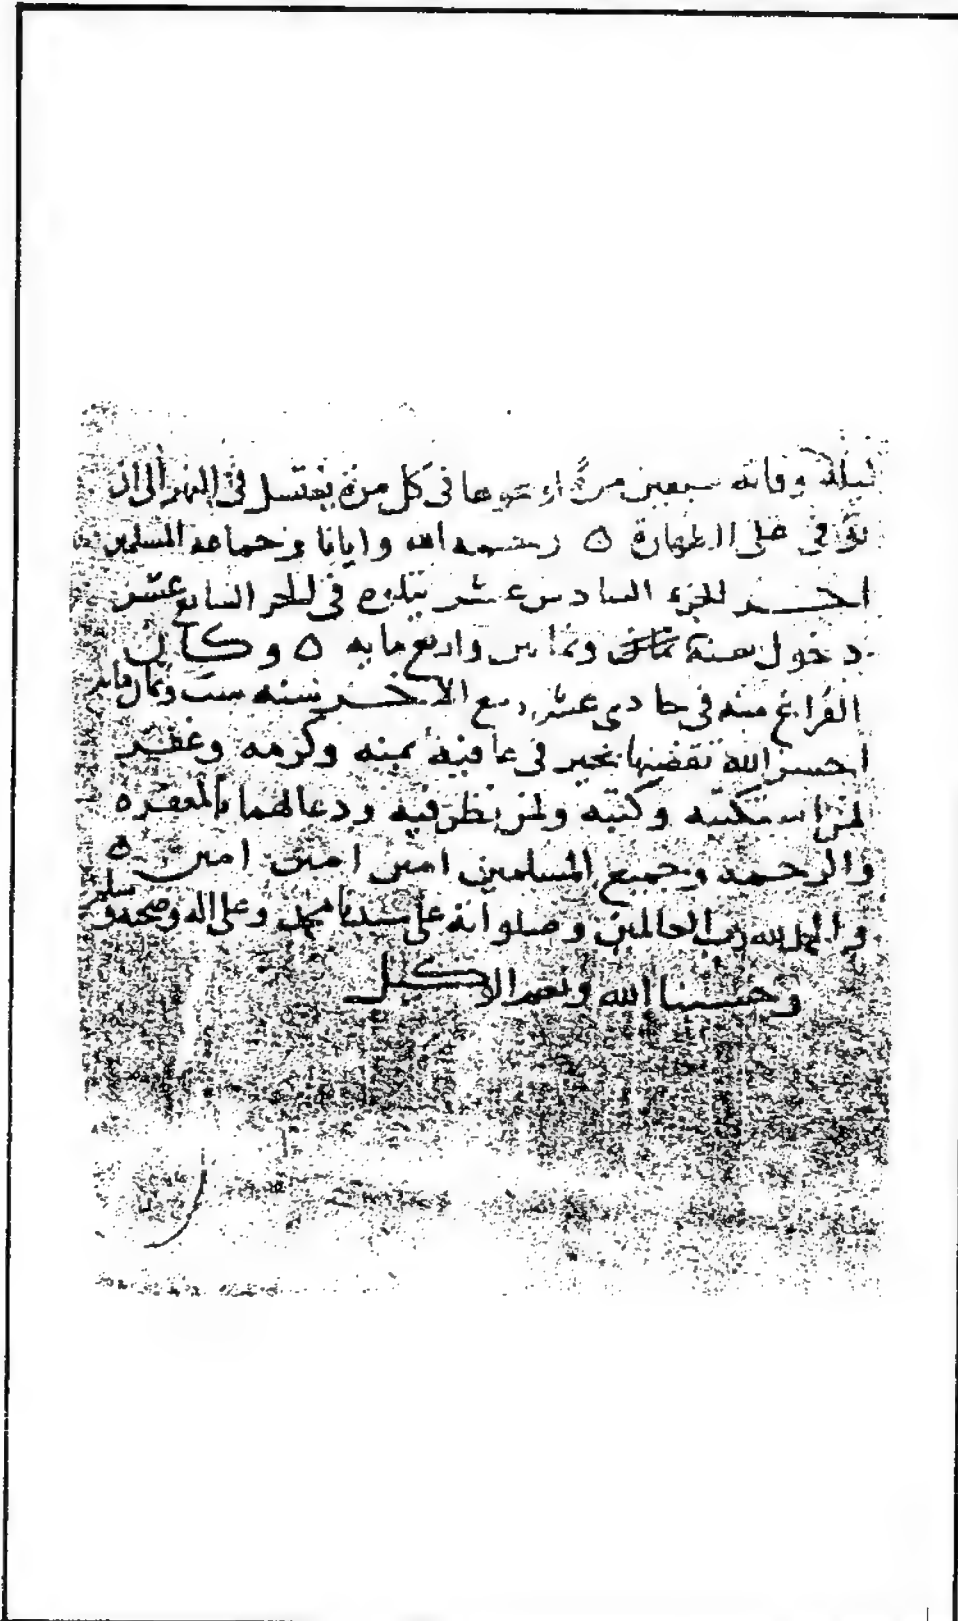 ليلة وفاته سبعين مرة او نحوها في كل مرة يغتسل في النهر الى ان
توفي على الطهارة ٥ رحمه الله وايانا وجماعه المسلمين
اخــر الجزء السادس عشر يتلوه في الجزء السابع عشر
دخول سنة وثمانين واربع مايه ٥ وكان
الفراغ منه في حادى عشر ربيع الاخــر سنه ست وثمان مايه
احسن الله تقضيها بخير في عافية بمنه وكرمه وغفر
لمن استكتبه وكتبه ولمن نظر فيه ودعا لهما بالمغفره
والرحمه وجميع المسلمين امين امين امين ٥
والحمد لله رب العالمين وصلواته على سيدنا محمد وعلى اله وصحبه وسلم
وحسبنا الله ونعم الوكيل